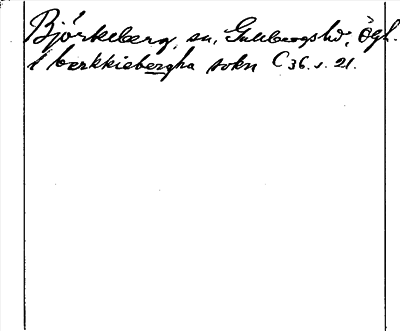 Björkeberg, sn, Gullbergs hd, Ögl.
i bœrkkiebergha sokn C 36. s. 21.